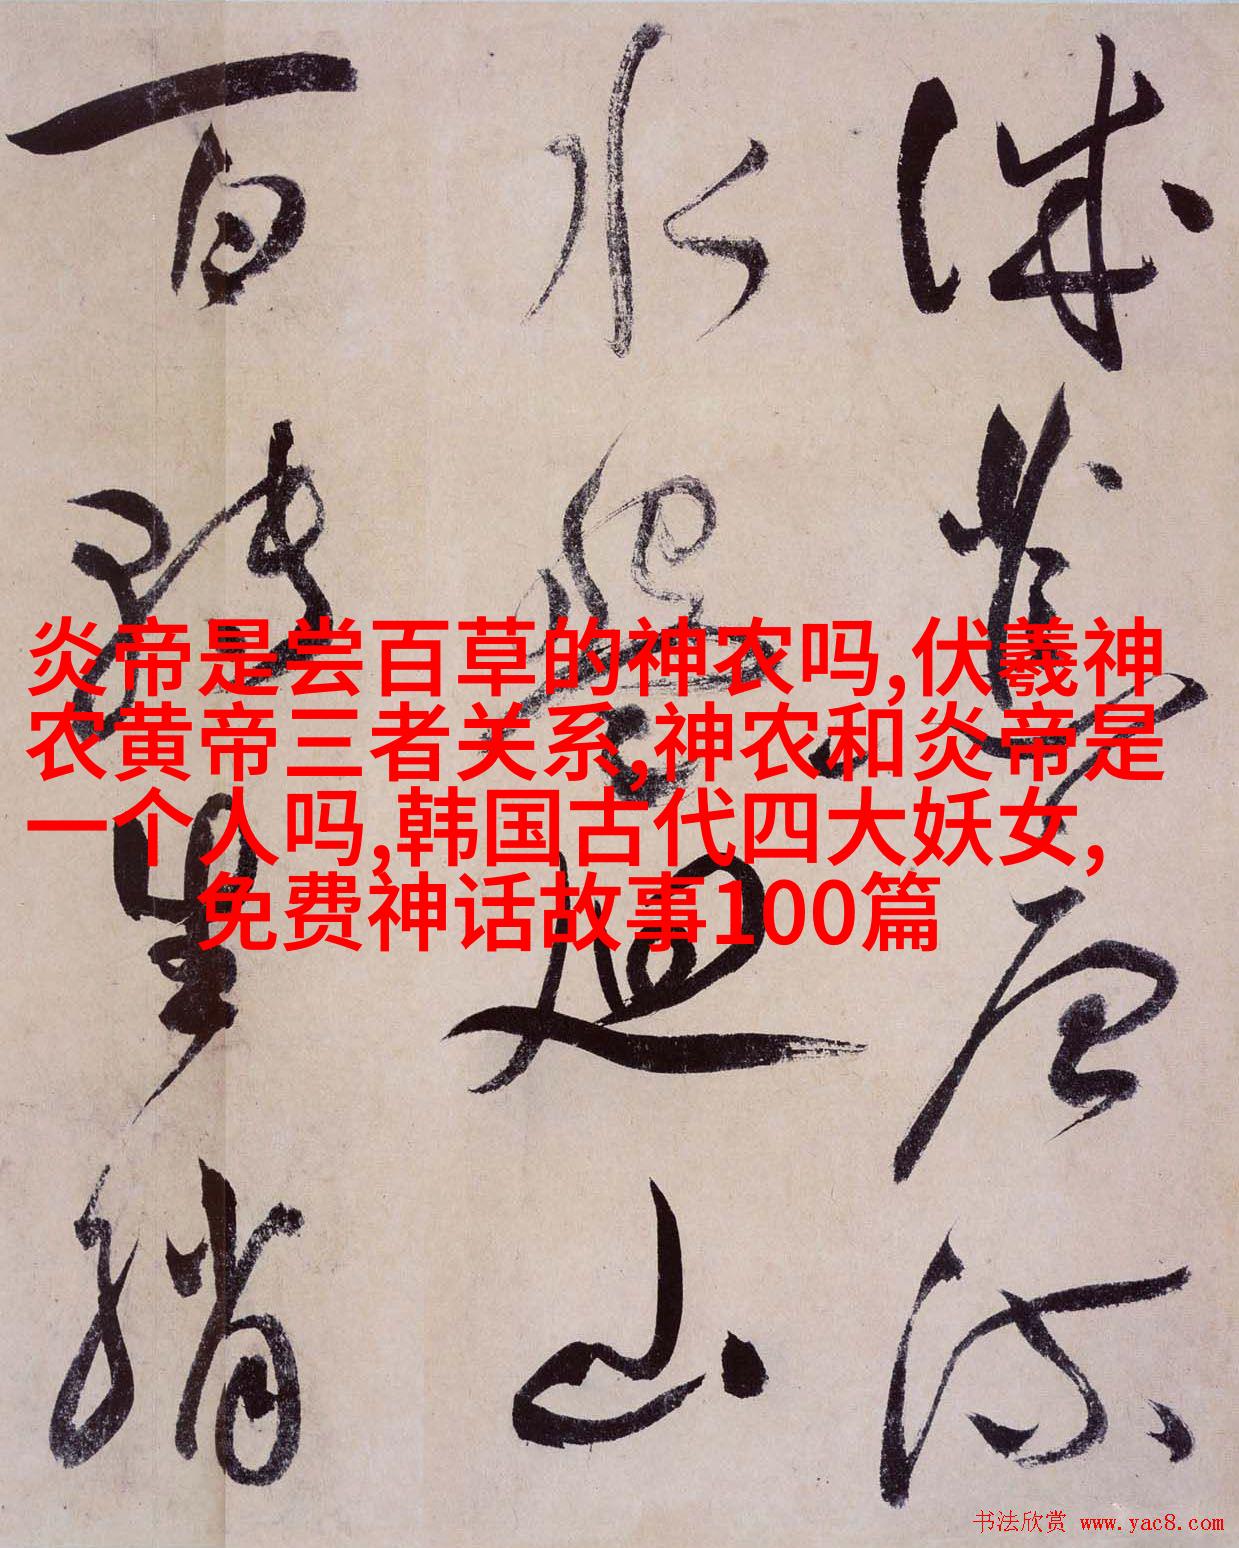 誠荒唐流
水盤迴山
百轉生綃
炎帝是尝百草的神农吗,伏羲神
农黄帝三者关系,神农和炎帝是
一个人吗,韩国古代四大妖女,
免费神话故事100篇
书法欣赏 www.yac8.com